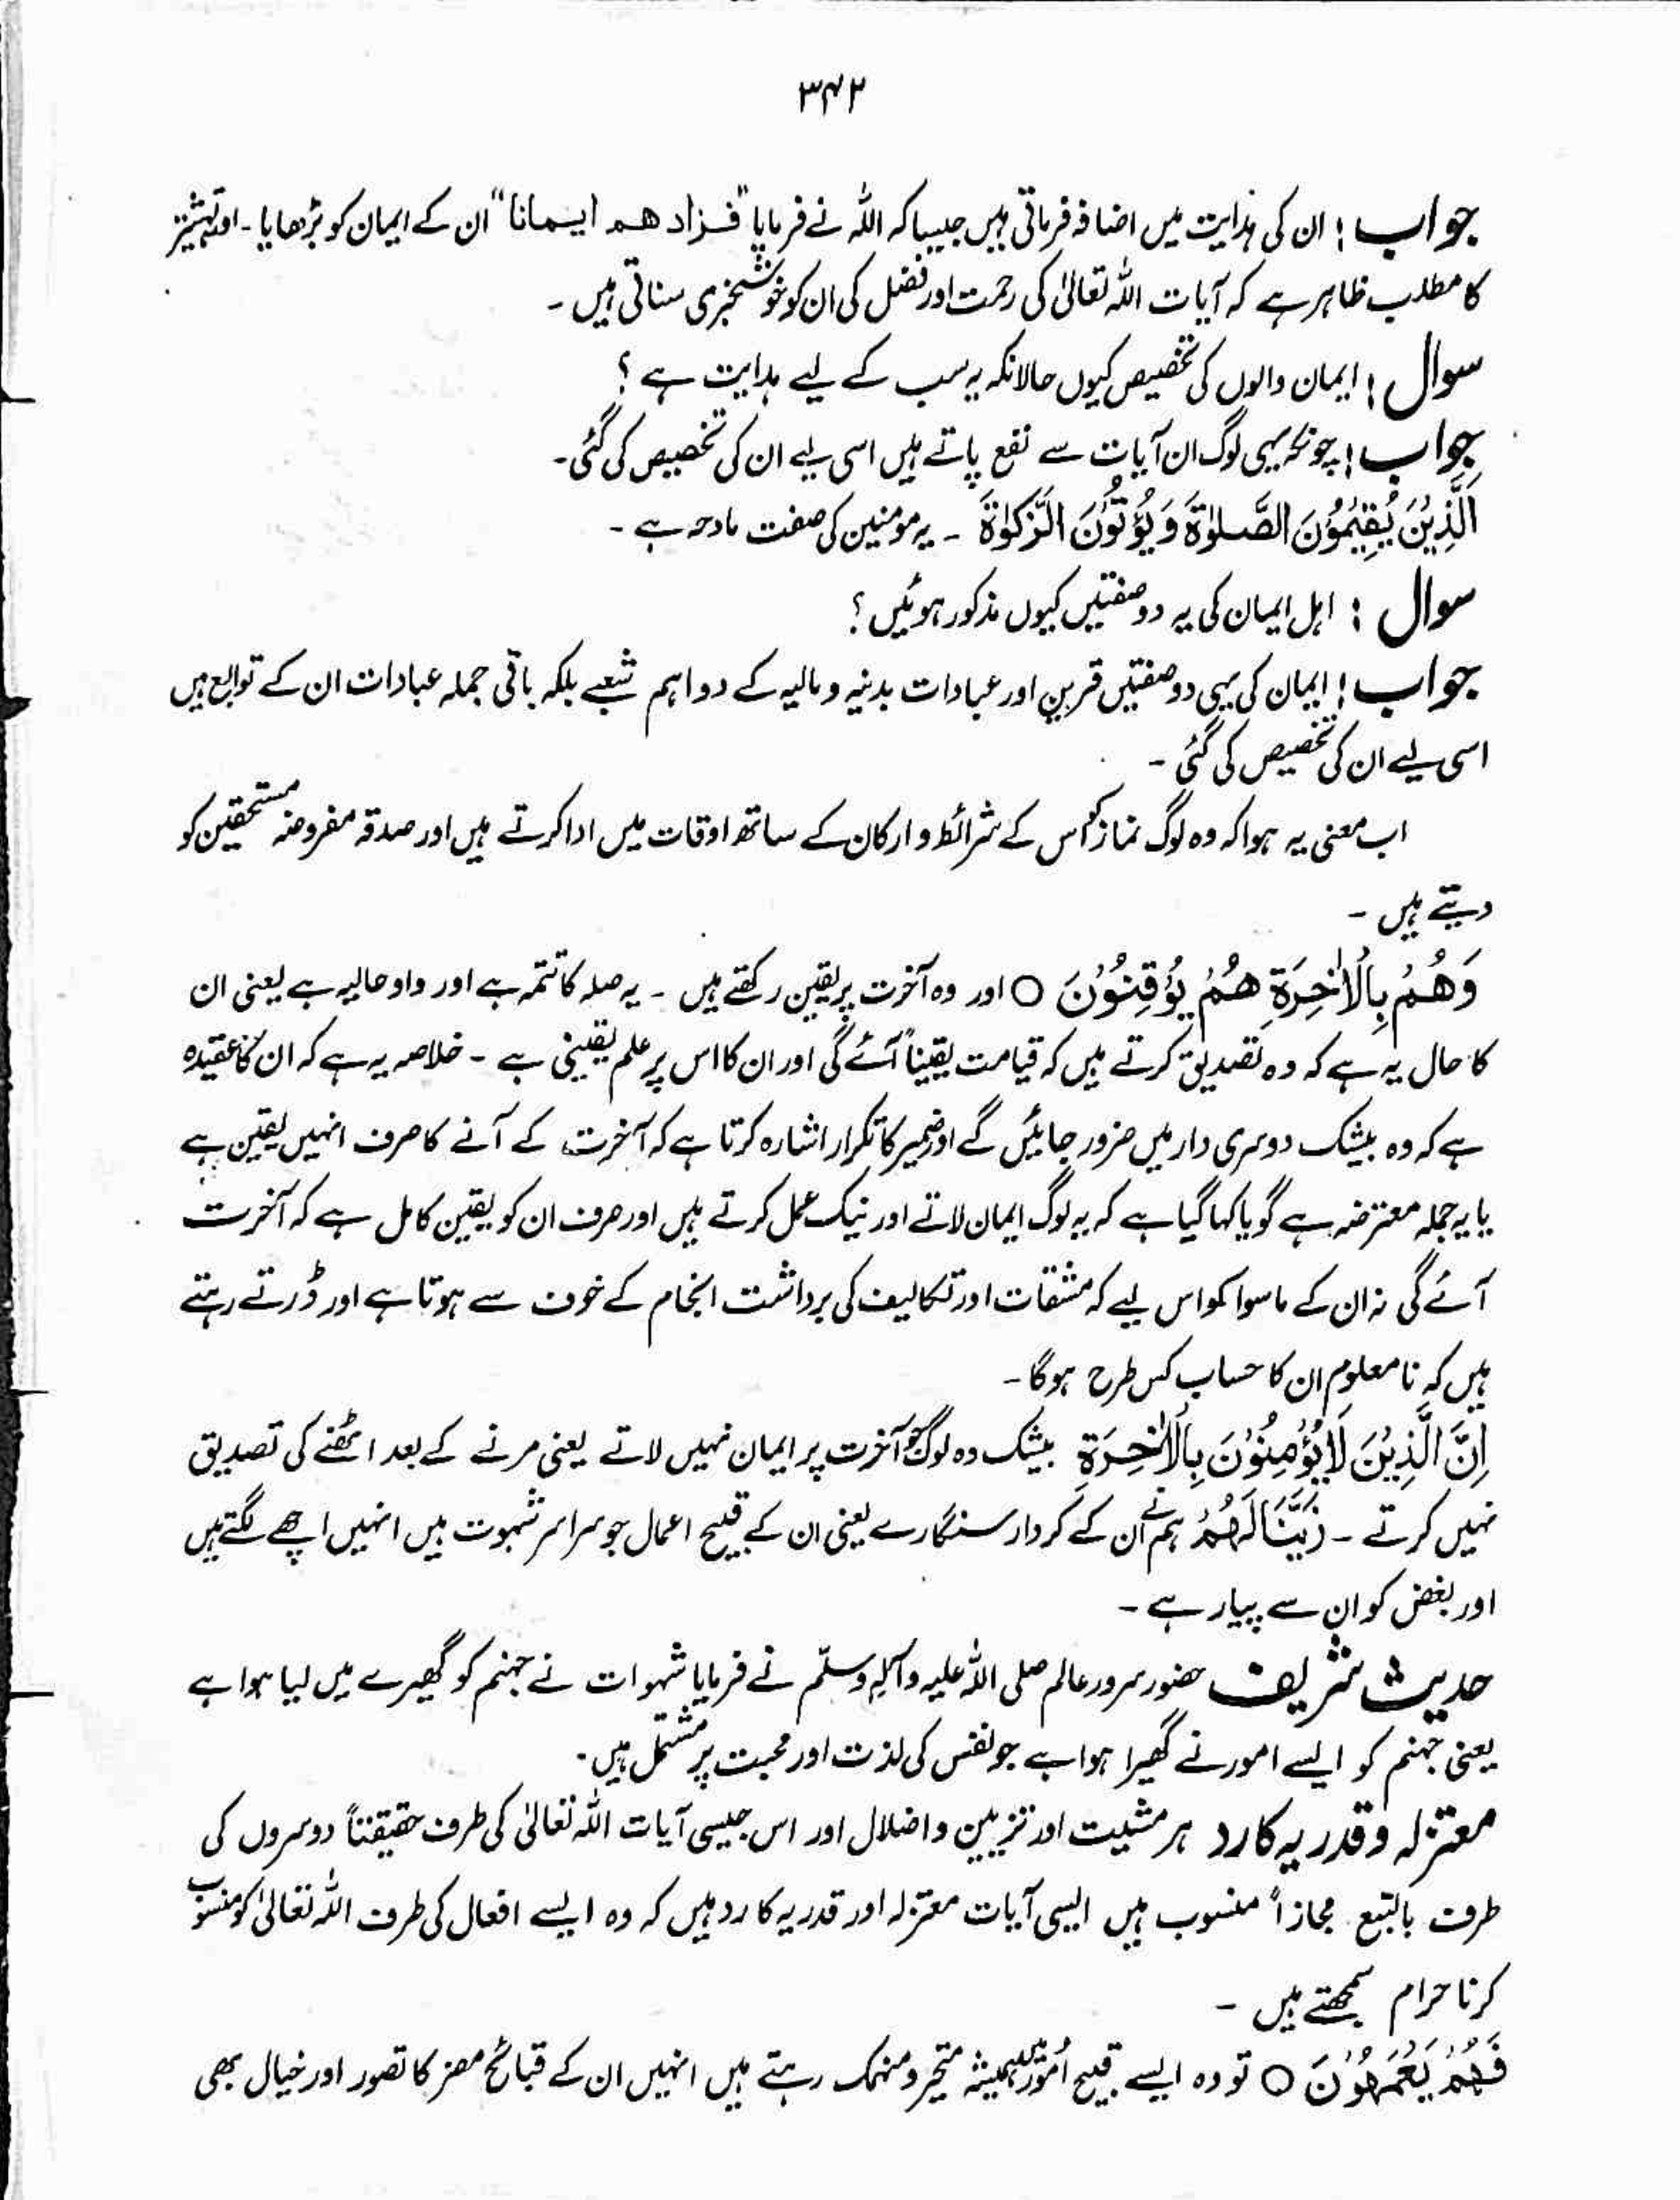 ۳۴۲
جواب : ان کی ہدایت میں اضافہ فرماتی ہیں جیسا کہ اللہ نے فرمایا "فزاد هم ایمانا" ان کے ایمان کو بڑھایا۔ اور تبشیر
کا مطلب ظاہر ہے کہ آیات اللہ تعالیٰ کی رحمت اور فضل کی ان کو خوشخبری سناتی ہیں ۔
سوال : ایمان والوں کی تخصیص کیوں حالانکہ یہ سب کے لیے ہدایت ہے ؟
جواب : چونکہ یہی لوگ ان آیات سے نفع پاتے ہیں اسی لیے ان کی تخصیص کی گئی۔
الَّذِيْنَ يُقِيْمُوْنَ الصَّلوٰةَ وَيُؤْتُوْنَ الزَّكوٰةَ ۔ یہ مومنین کی صفت مادحہ ہے ۔
سوال : اہل ایمان کی یہ دو صفتیں کیوں مذکور ہوئیں ؟
جواب : ایمان کی یہی دو صفتیں قرین اور عبادات بدنیہ و مالیہ کے دو اہم شعبے بلکہ باقی جملہ عبادات ان کے توابع ہیں
اسی لیے ان کی تخصیص کی گئی ۔
اب معنی یہ ہوا کہ وہ لوگ نماز کو اس کے شرائط و ارکان کے ساتھ اوقات میں ادا کرتے ہیں اور صدقہ مفروضہ مستحقین کو
دیتے ہیں ۔
وَهُمْ بِالْاٰخِرَةِ هُمْ يُوْقِنُوْنَ ○ اور وہ آخرت پر یقین رکھتے ہیں ۔ یہ صلہ کا تتمہ ہے اور واو حالیہ ہے یعنی ان
کا حال یہ ہے کہ وہ تصدیق کرتے ہیں کہ قیامت یقیناً آئے گی اور ان کا اس پر علم یقینی ہے ۔ خلاصہ یہ ہے کہ ان کا عقیدہ
ہے کہ وہ بیشک دوسری دار میں ضرور جائیں گے اور ضمیر کا تکرار اشارہ کرتا ہے کہ آخرت کے آنے کا صرف انہیں یقین ہے
یا یہ جملہ معترضہ ہے گویا کہا گیا ہے کہ یہ لوگ ایمان لاتے اور نیک عمل کرتے ہیں اور صرف ان کو یقین کامل ہے کہ آخرت
آئے گی نہ ان کے ماسوا کو اس لیے کہ مشقات اور تکالیف کی برداشت انجام کے خوف سے ہوتا ہے اور ڈرتے رہتے
ہیں کہ نا معلوم ان کا حساب کس طرح ہوگا ۔
اِنَّ الَّذِيْنَ لَا يُؤْمِنُوْنَ بِالْاٰخِرَةِ بیشک وہ لوگ جو آخرت پر ایمان نہیں لاتے یعنی مرنے کے بعد اٹھنے کی تصدیق
نہیں کرتے ۔ زَيَّنَّا لَهُمْ ہم نے ان کے کردار سنگارے یعنی ان کے قبیح اعمال جو سراسر شہوت ہیں انہیں اچھے لگتے ہیں
اور بغض کو ان سے پیار ہے ۔
حدیث شریف حضور سرور عالم صلی اللہ علیہ وآلہ وسلّم نے فرمایا شہوات نے جہنم کو گھیرے میں لیا ہوا ہے
یعنی جہنم کو ایسے امور نے گھیرا ہوا ہے جو نفس کی لذت اور محبت پر مشتمل ہیں ۔
معتزلہ و قدریہ کا رد ہر مشیت اور تزیین و اضلال اور اس جیسی آیات اللہ تعالیٰ کی طرف حقیقتاً دوسروں کی
طرف بالتبع مجازاً منسوب ہیں ایسی آیات معتزلہ اور قدریہ کا رد ہیں کہ وہ ایسے افعال کی طرف اللہ تعالیٰ کو منسوب
کرنا حرام سمجھتے ہیں ۔
فَهُمْ يَعْمَهُوْنَ ○ تو وہ ایسے قبیح اُمور میں ہمیشہ متحیر و منہمک رہتے ہیں انہیں ان کے قبائح مضر کا تصور اور خیال بھی